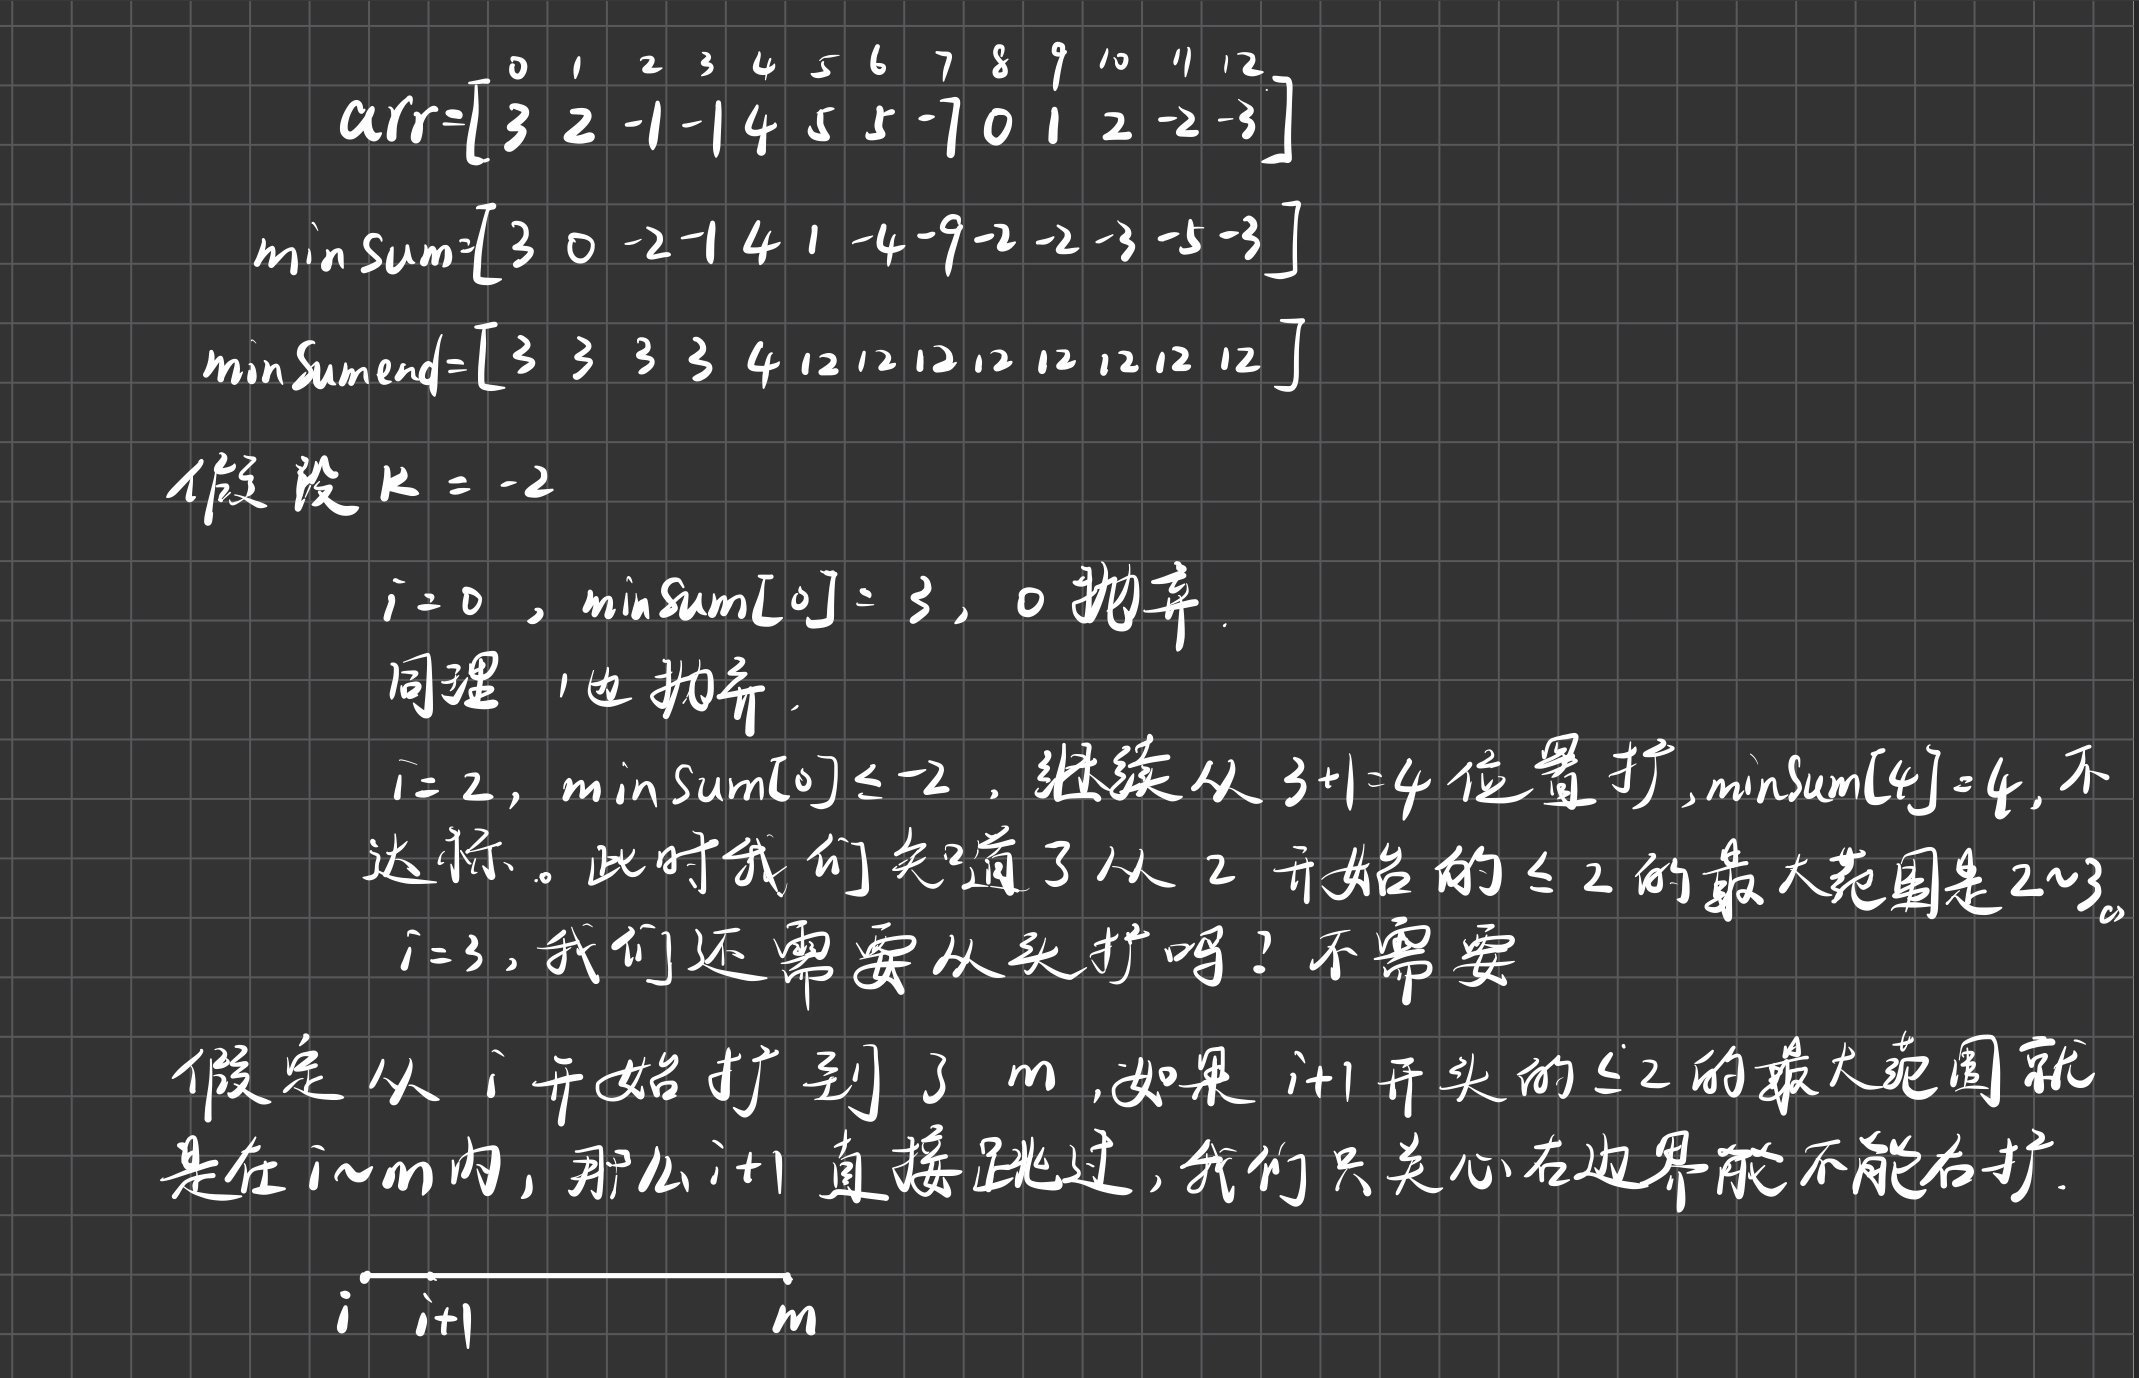 0 1 2 3 4 5 6 7 8 9 10 11 12
arr=[3 2 -1 -1 4 5 5 -7 0 1 2 -2 -3]
minsum=[3 0 -2 -1 4 1 -4 -9 -2 -2 -3 -5 -3]
minsumend=[3 3 3 3 4 12 12 12 12 12 12 12 12]
假设 K = -2
i=0, minsum[0]=3, 0抛弃.
同理 1也抛弃.
i=2, minsum[0]≤-2, 继续从3+1=4位置扩,minsum[4]=4,不
达标。此时我们知道了从2开始的≤2的最大范围是2~3。
i=3,我们还需要从头扩吗?不需要
假定从i开始扩到了m,如果i+1开头的≤2的最大范围就
是在i~m内,那么i+1直接跳过,我们只关心右边界能不能右扩.
i i+1 m